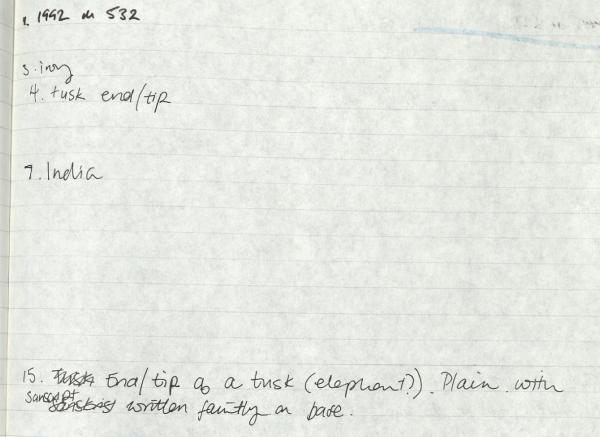 1. 1992 M 532
3. ivory
4. tusk end/tip
7. India
15. End/tip of a tusk (elephant?). Plain with
sanscript written faintly on base.